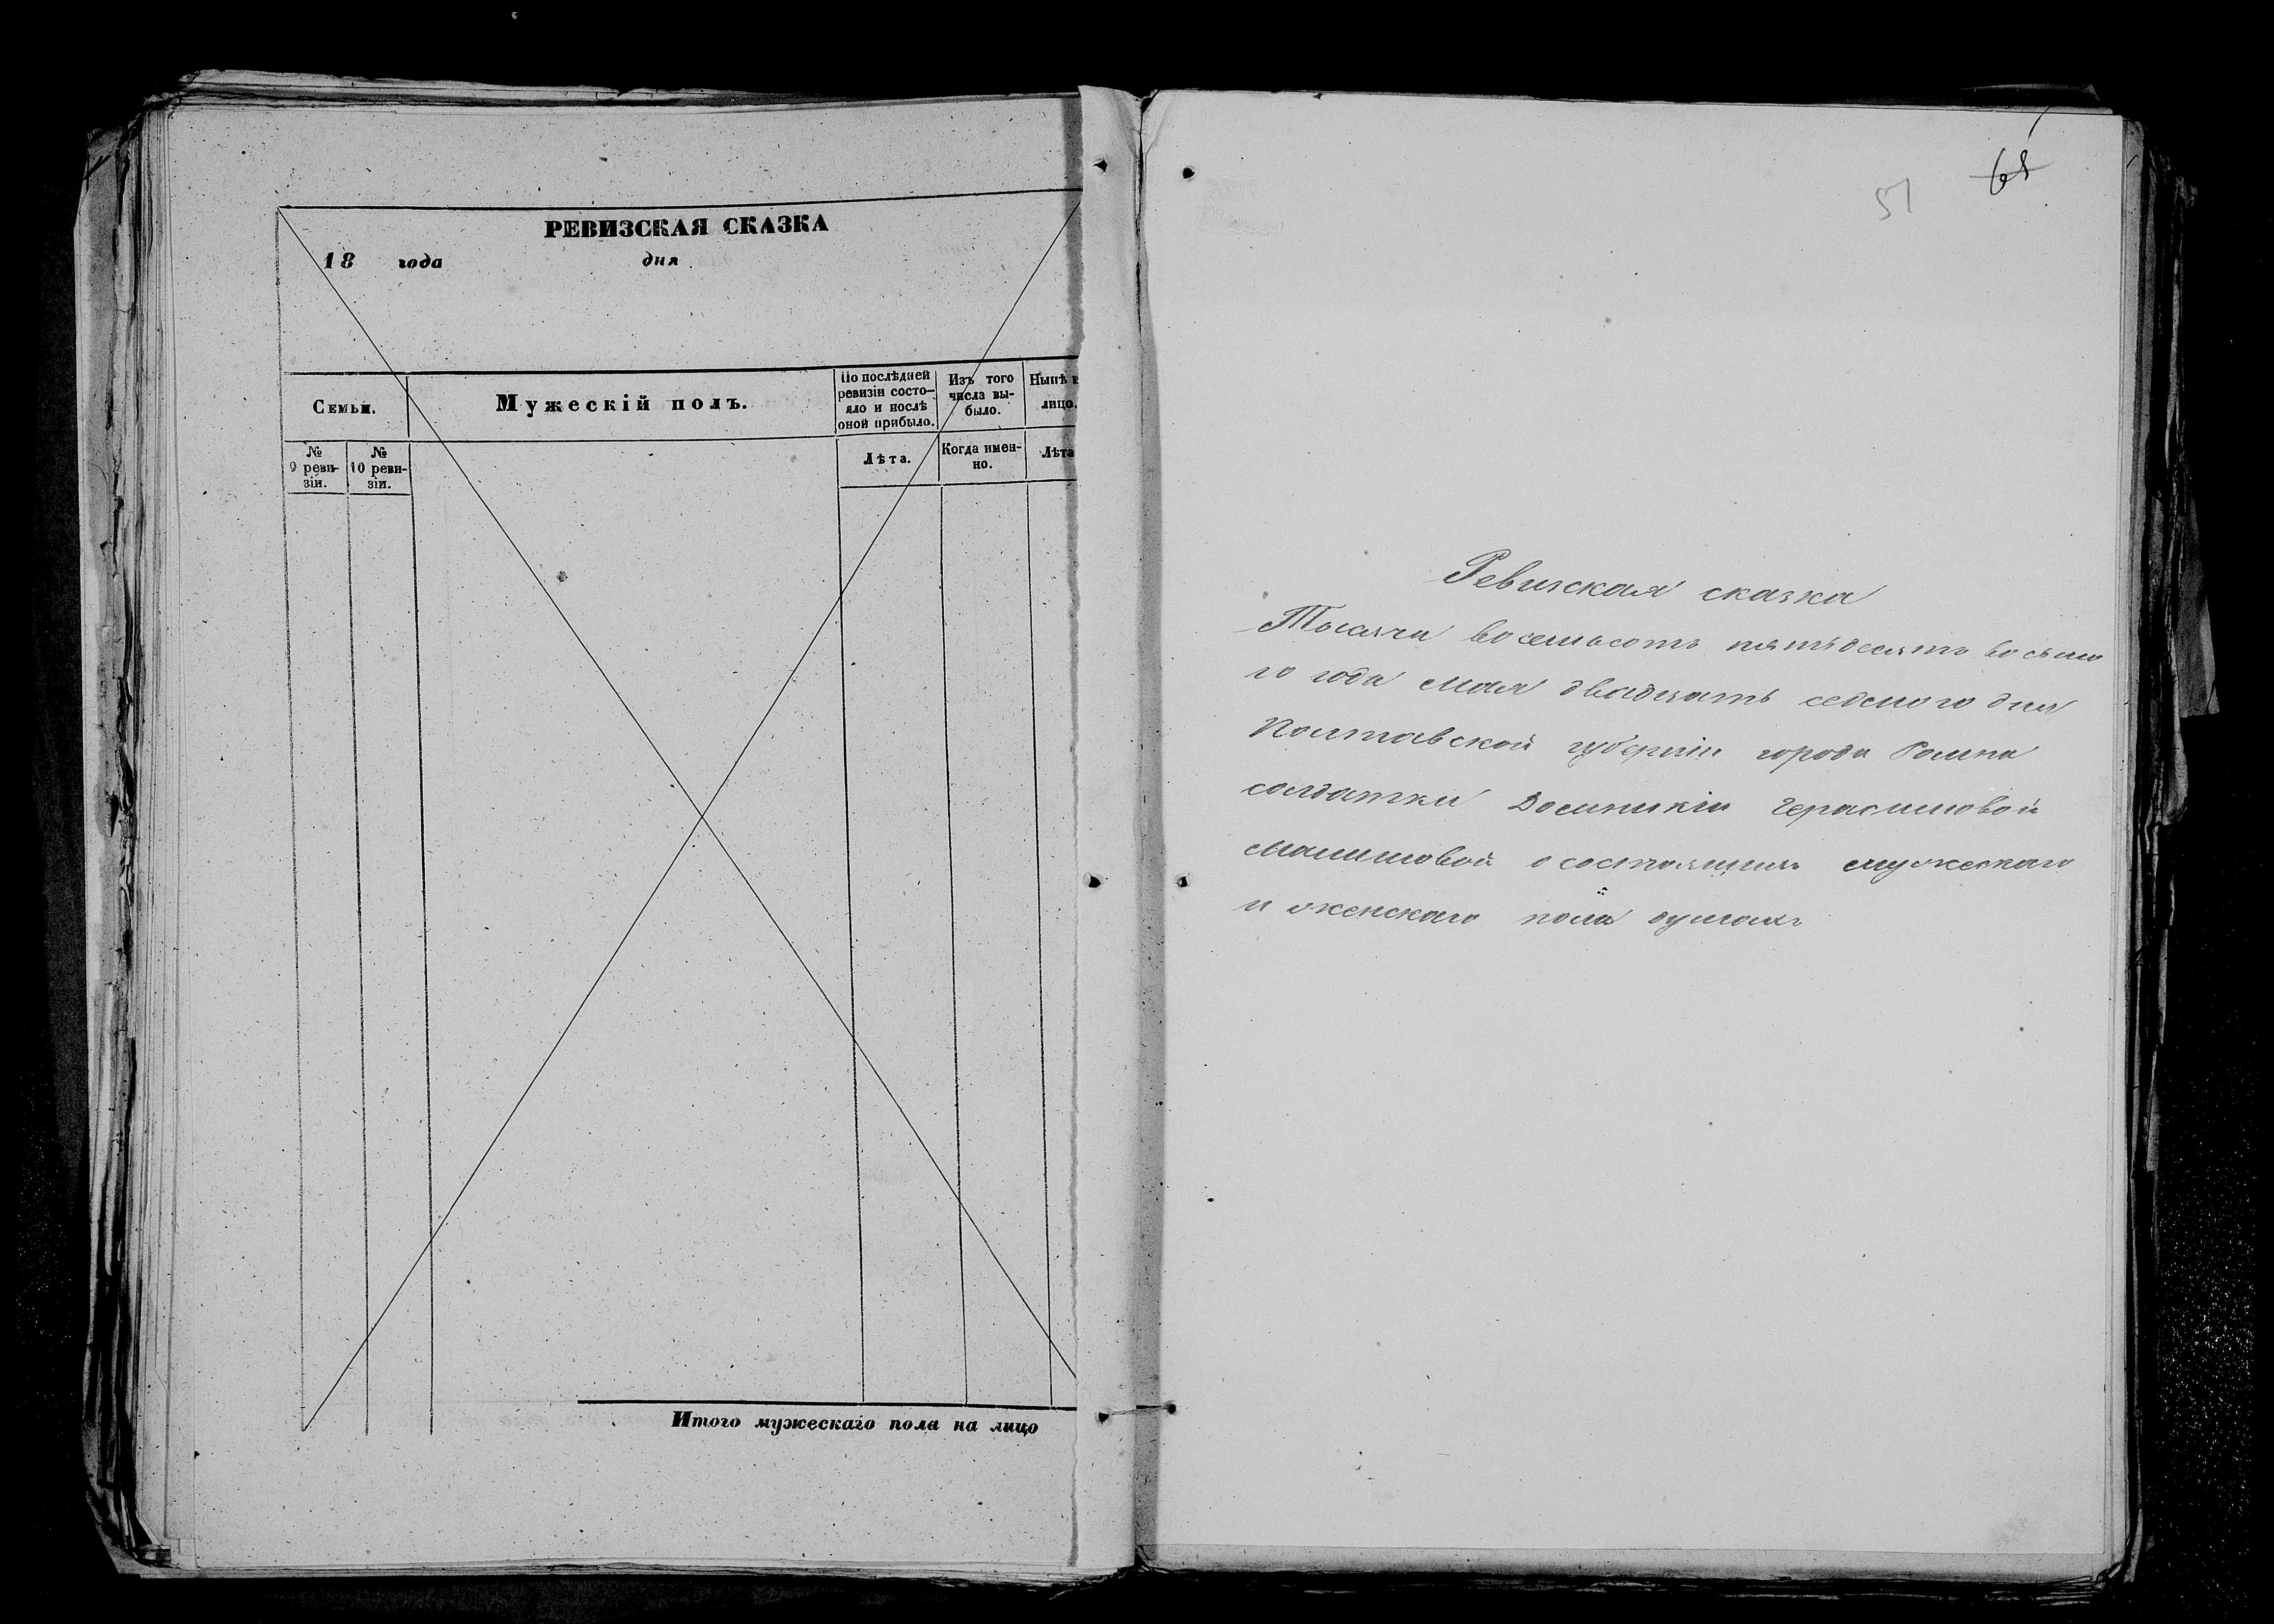 РЕВИЗСКАЯ СКАЗКА
18 года дня
Семьи.
Мужескій полъ.
По послѣдней
ревизіи состо-
яло и послѣ
оной прибыло.
Изъ того
числа вы-
было.
Нынѣ
лицо.
№
9 реви-
зіи.
№
10 реви-
зіи.
Лѣта.
Когда имен-
но.
Лѣта
Итого мужескаго пола на лицо
51
Ревизская сказка
Тысяча восемьсотъ пятьдесятъ восьмо
го года мая двадцать седмого дня
Полтавской губерніи города Ромна
солдатки Домникіи Герасимовой
о состоящихъ мужескаго
и женскаго пола душахъ